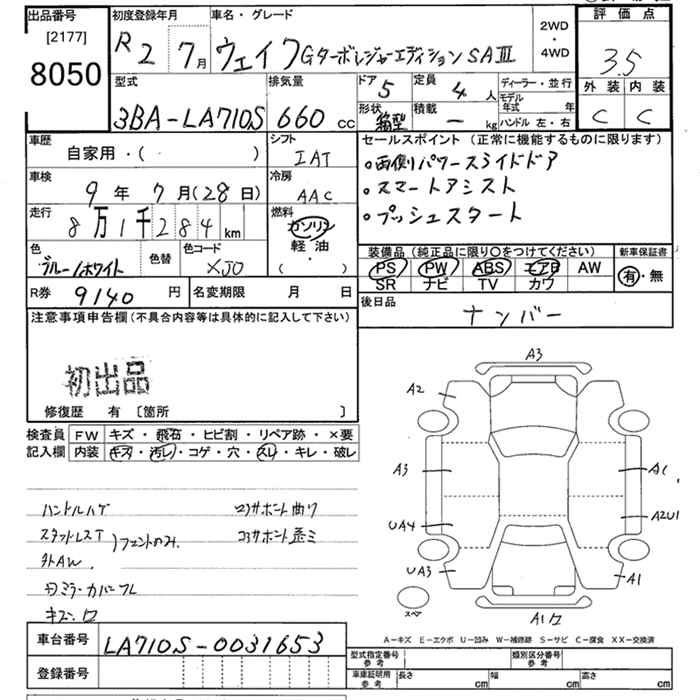 出品番号
[2177]
8050
初度登録年月
R2 7月
車名・グレード
ウェイク GターボレジャーエディションSAⅢ
2WD
・
4WD
評価点
3.5
外装 内装
C C
型式
3BA-LA710S
排気量
660 cc
ドア 5
定員 4人
形状 箱型
積載 ー kg
ディーラー・並行
モデル年式 年
ハンドル 左・右
車歴
自家用・( )
シフト
IAT
車検
9年 7月(28日)
冷房
AAC
走行
8万1千284km
燃料
ガソリン
軽油
( )
色
ブルー/ホワイト
色替
色コード
XJ0
R券 9140 円
名変期限 月 日
セールスポイント(正常に機能するものに限ります)
・両側パワースライドドア
・スマートアシスト
・プッシュスタート
装備品(純正品に限り〇をつけてください)
新車保証書
PS PW ABS エアB AW
SR ナビ TV カワ
有・無
後日品
ナンバー
注意事項申告欄(不具合内容等は具体的に記入して下さい)
初出品
修復歴 有 〔箇所 〕
検査員記入欄
FW キズ・飛石・ヒビ割・リペア跡・×要
内装 キズ・汚レ・コゲ・穴・スレ・キレ・破レ
ハンドルハゲ
スタッドレスT
フェントのみ.
外AW.
キズ
コアサポート曲り
コアサポート歪ミ
A3
A2
A3
UA4
UA3
A1
A2U1
A1
スペア
A-キズ E-エクボ U-凹み W-補修跡 S-サビ C-腐食 XX-交換済
車台番号
LA710S-0031653
登録番号
型式指定番号
参考
類別区分番号
参考
車庫証明用
参考
長さ cm
幅 cm
高さ cm